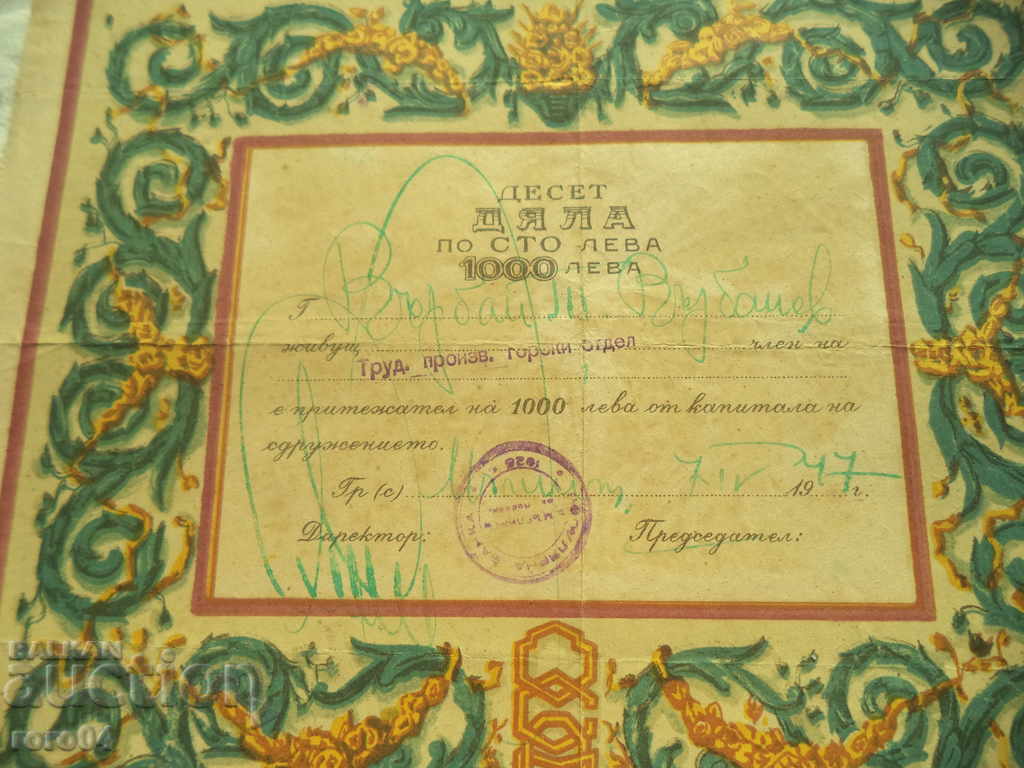 ДЕСЕТ
ДЯЛА
ПО СТО ЛЕВА
1000 ЛЕВА
Г Върбан Върбанов
живущ член на
Труд. произв. горски отдел
е притежател на 1000 лева от капитала на
сдружението.
Гр (с) 7 IV 1947 г.
Директор: Председател:
1926
BALKAN
auction
roro04